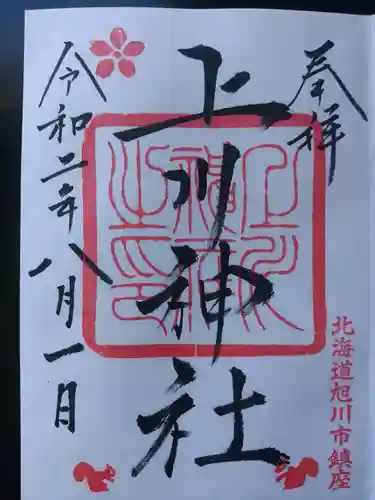 奉拝
北海道旭川市鎮座
上川神社
令和二年八月一日